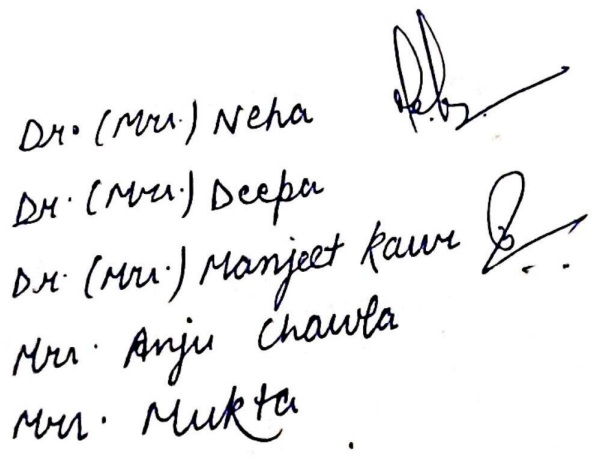 Dr. (Mrs.) Neha
Dr. (Mrs.) Deepa
Dr. (Mrs.) Manjeet Kaur
Mrs. Anju Chawla
Mrs. Mukta